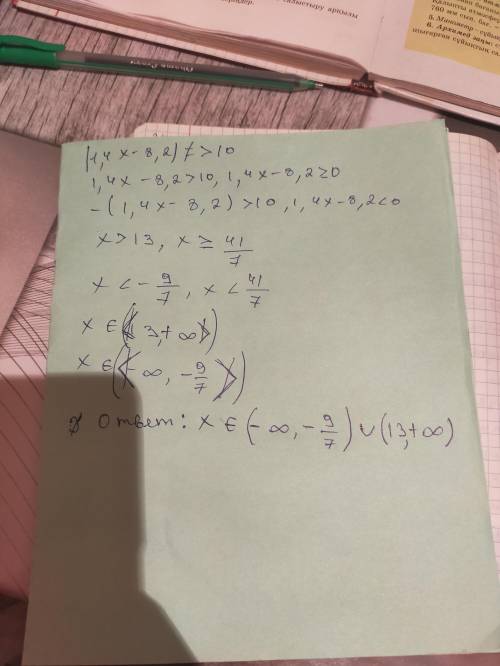 760 мм сын. бағ.
|1,4x-8,2|>10
1,4x-8,2>10, 1,4x-8,2≥0
-(1,4x-8,2)>10, 1,4x-8,2<0
x>13, x≥41/7
x<-9/7, x<41/7
x∈(13,+∞)
x∈(-∞,-9/7)
Ответ: x∈(-∞,-9/7)∪(13,+∞)